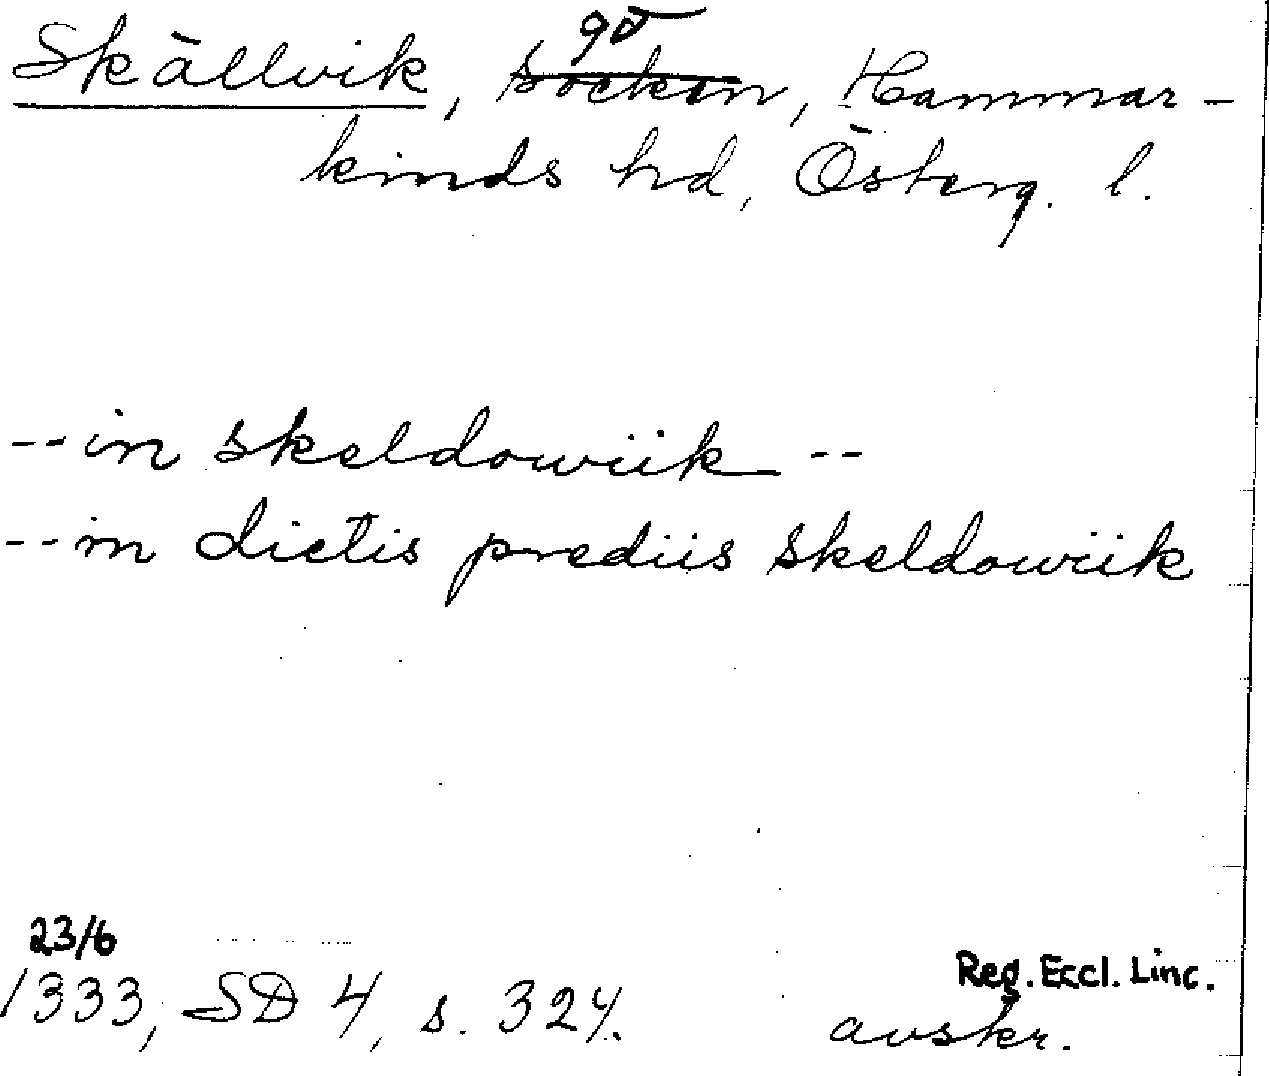 gd
Skällvik, socken, Hammar-
kinds hd, Österg. l.
--in skeldowiik--
--in dictis prediis skeldowiik
23/6
1333, SD 4, s. 324.
Reg. Eccl. Linc.
avskr.